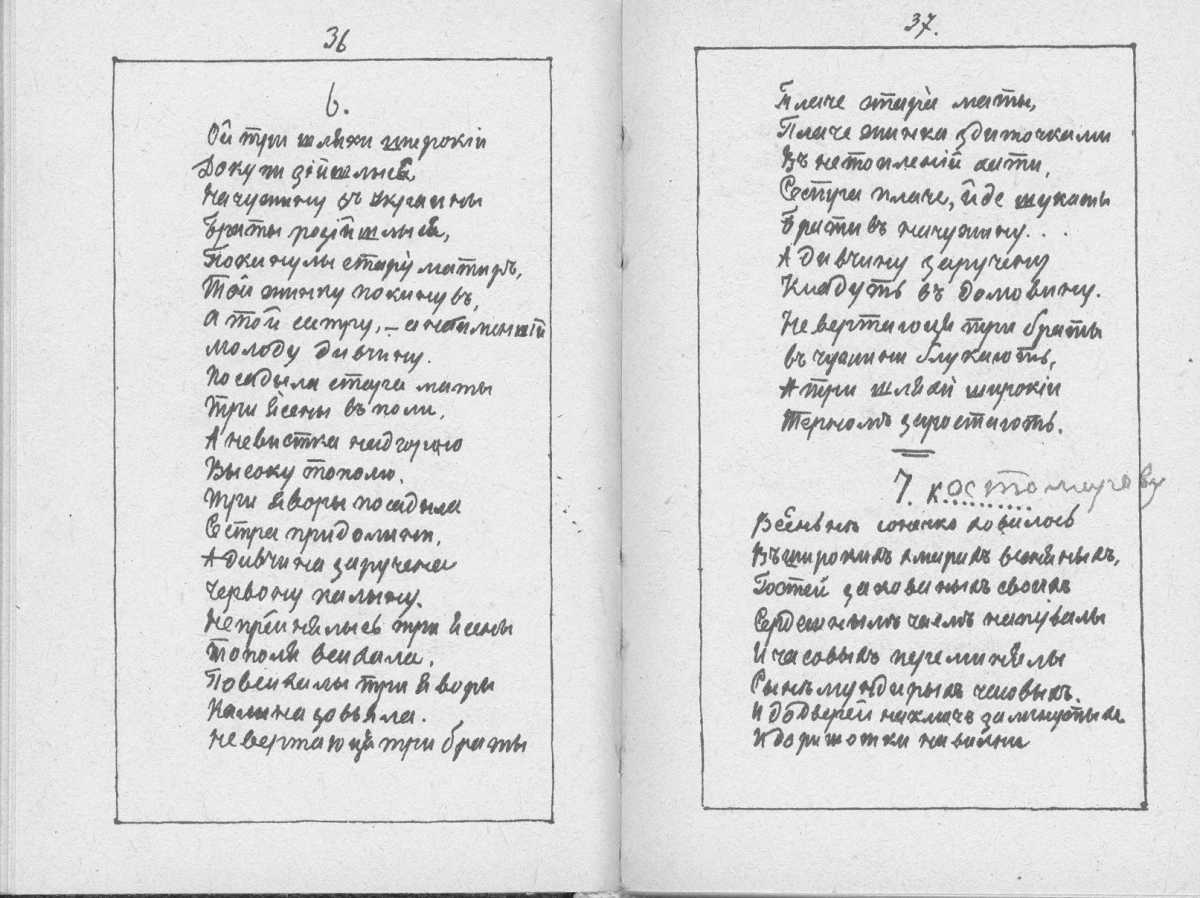 36
6.
Ой три шляхи широкіи
Докупи зійшлыся
На чужину зъ Украины
Браты розійшлыся,
Покинулы стару матирь,
Той жинку покинувъ,
А той систру, – а найменшій
Молоду дивчину.
Посадыла стара маты
Три ясены въ поли,
А невистка надгорою
Высоку тополю.
Три яворы посадыла
Сестра при долини,
А дивчина заручена
Червону калыну.
Неприйнялысь три ясены
Тополя всихала,
Повсихалы три яворы
Калына зовьяла.
Невертаюця три браты
37.
Плаче стара маты,
Плаче жинка здиточками
Въ нетопленій хати,
Сестра плаче, йде шукаты
Бративъ начужину...
А дивчину заручену
Кладуть въ домовину.
Невертаюця три браты
въ чужини блукають,
А три шляхи широкіи
Терномъ заростають.
7. Костомарову
Весення сонечко ховалось
Въ широкихъ хмарахъ весняныхъ,
Гостей закованыхъ своихъ
Сердешнымъ чаемъ напувалы
И часовыхъ переминялы
Сынёмундирныхъ часовыхъ.
И до дверей на ключъ замкнутыхъ
И до ришотки на викни